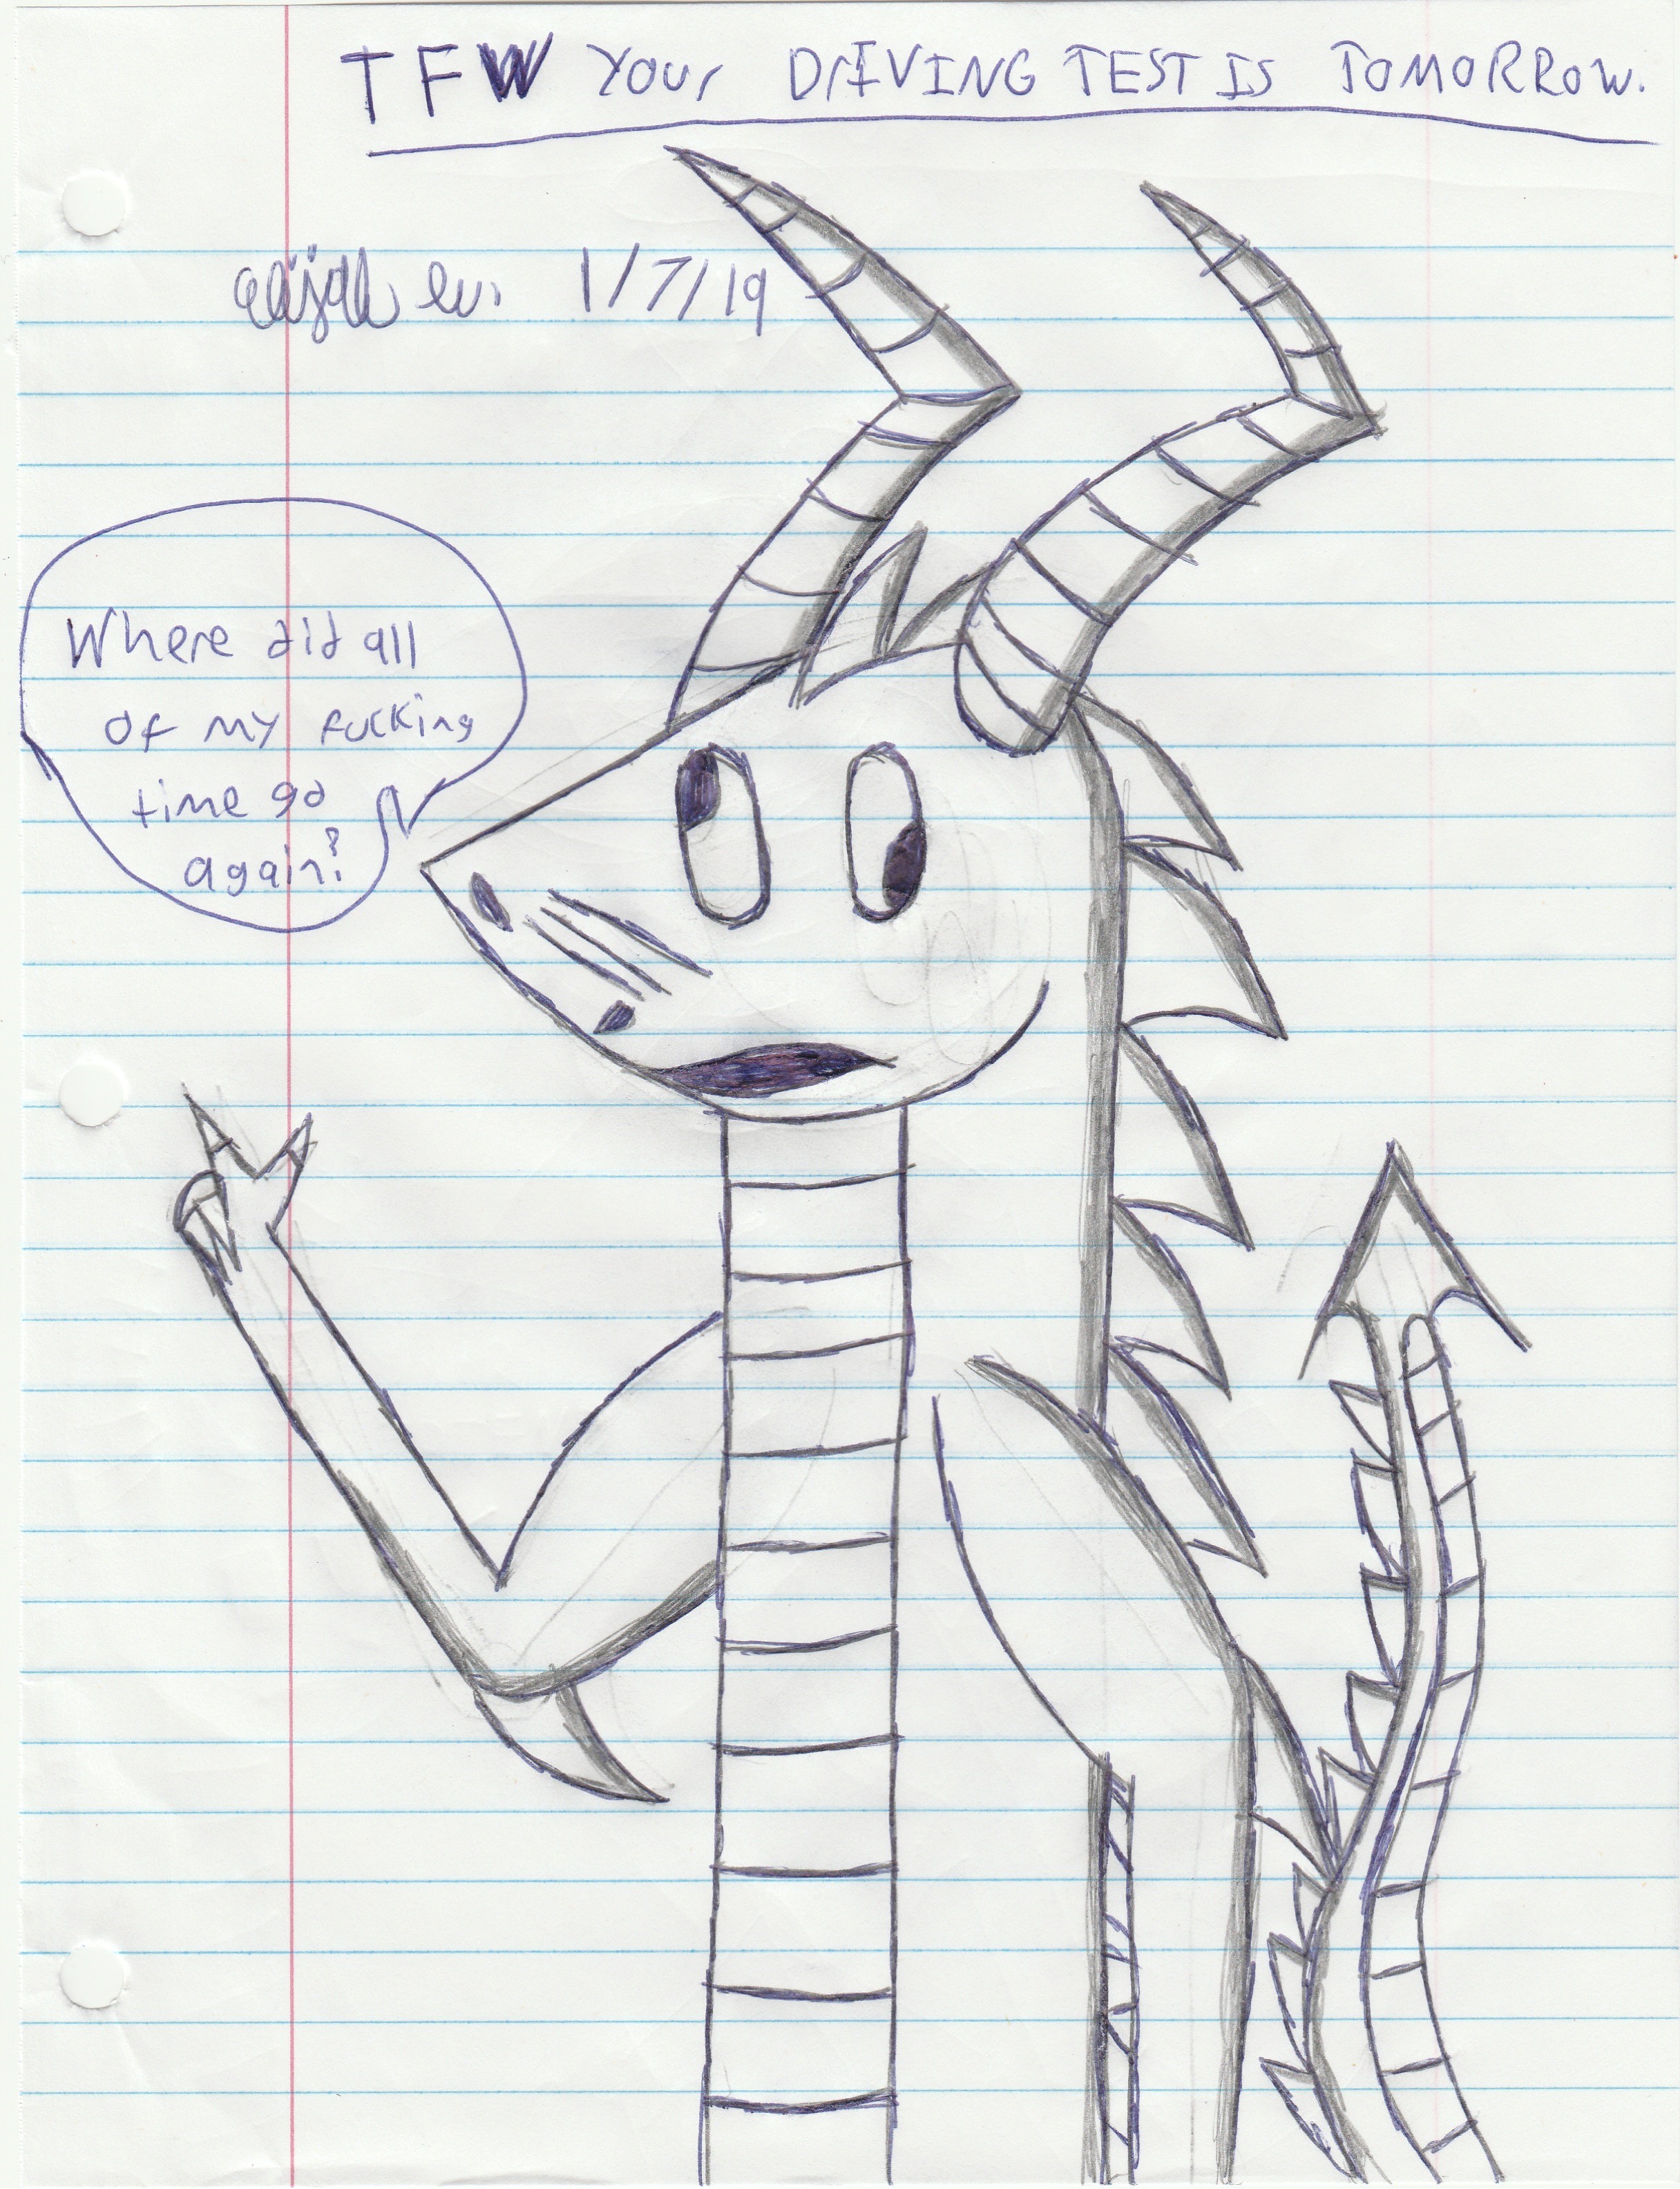 TFW YOUr DrIVING TEST IS TOMORROW.
elijah ew. 1/7/19
Where did all
of my fucking
time go
again?